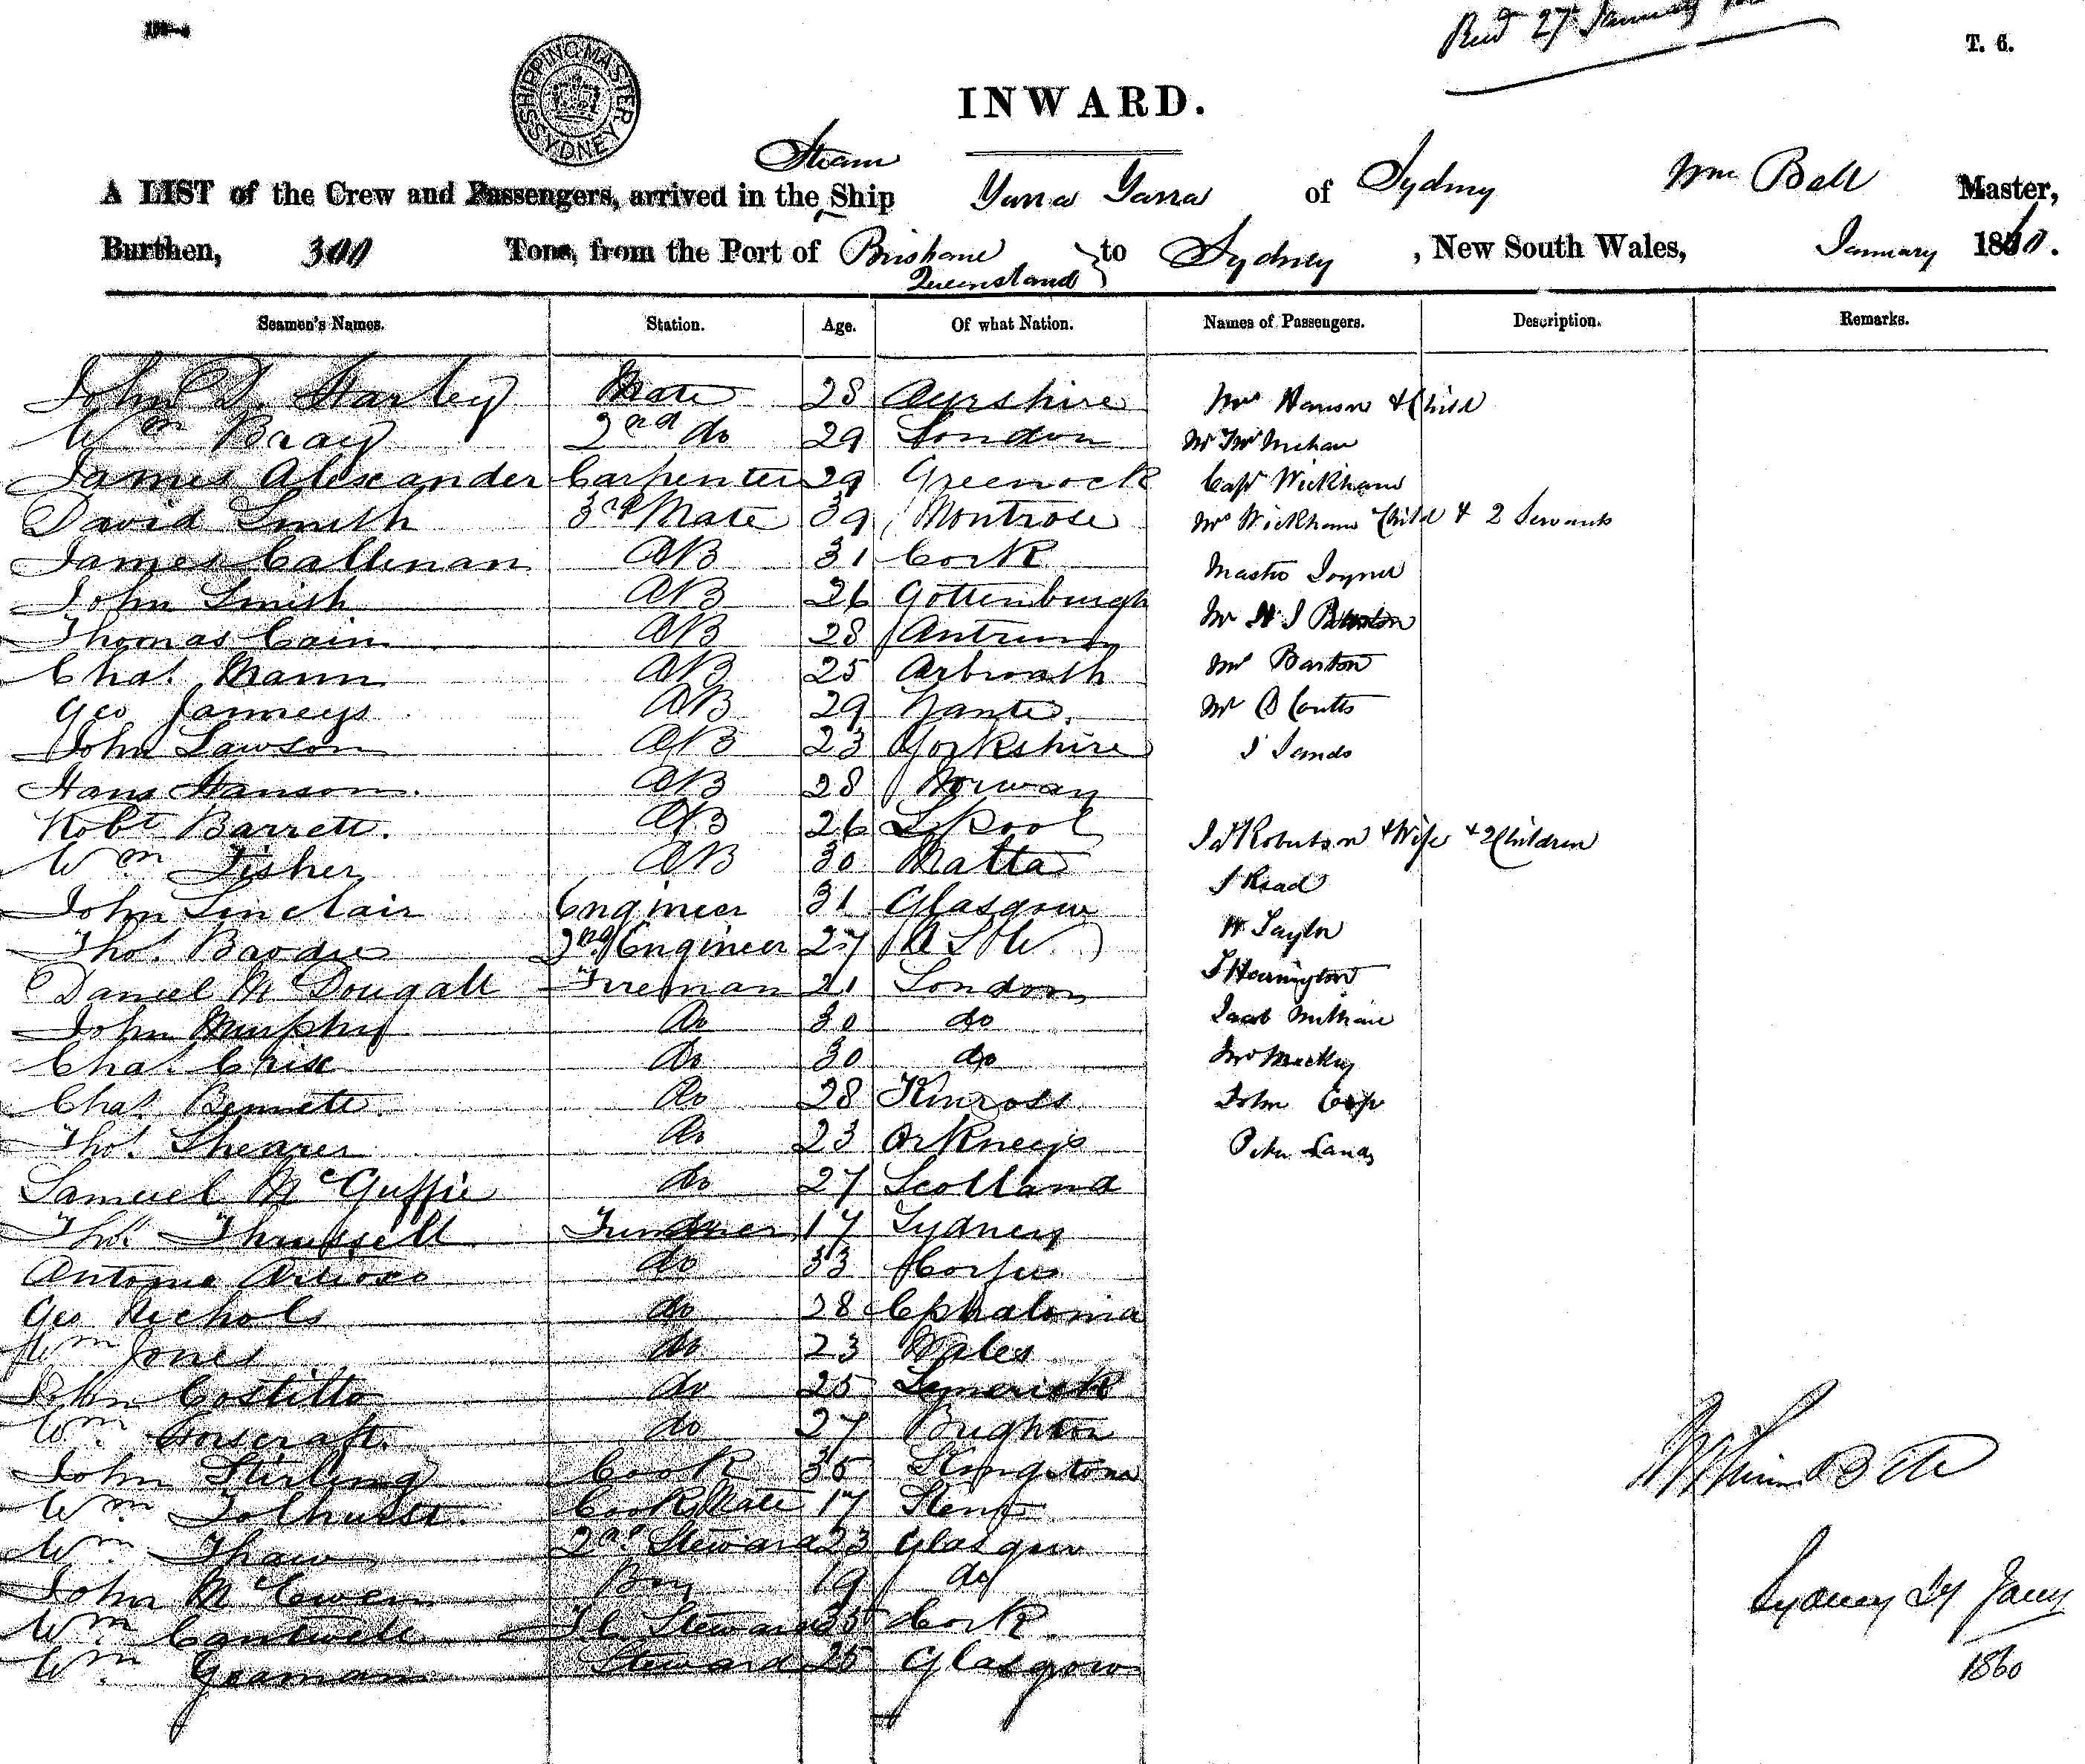 Recd 27 January
T. 6.
SHIPPING MASTER SYDNEY
INWARD.
Steam
A LIST of the Crew and Passengers, arrived in the Ship Yarra Yarra of Sydney Wm Bell Master,
Burthen, 300 Tons, from the Port of Brisbane Queensland to Sydney, New South Wales, January 1860.
Seamen's Names. Station. Age. Of what Nation. Names of Passengers. Description. Remarks.
John D. Harley Mate 28 Ayrshire Mrs Hanson & Child
Wm Bray 2nd do 29 London Mr
James Alexander Carpenter 29 Greenock Capt Wickham
David Smith 3rd Mate 39 Montrose Mrs Wickham Child & 2 Servants
James Callinan AB 31 Cork Master Joyner
John Smith AB 26 Gottenburgh Mr
Thomas Cain AB 28 Antrim
Chas. Mann AB 25 Arbroath Mr Barton
Geo Janneys AB 29 Zante. Mr B Coutts
John Lawson AB 23 Yorkshire J Sands
Hans Hanson. AB 28 Norway
Robt Barrett. AB 26 L.Pool Robertson & Wife & 2 Children
Wm Fisher AB 30 Malta J Read
John Sinclair Engineer 31 Glasgow W Taylor
Thos. Brodie 2nd Engineer 27 N S W J Herrington
Daniel McDougall Fireman 21 London Jacob
John Murphy do 30 do
Chas. Crix do 30 do
Chas. Bennett do 28 Kinross John
Thos. Shearer do 23 Orkneys Peter
Samuel McGuffie do 27 Scotland
Thos. Trimmer 17 Sydney
Antonio do 33 Corfu
Geo Nichols do 28 Cephalonia
Wm Jones do 23 Wales
John Costillo do 25 Lymerick
Wm Horscraft. do 27 Brighton
John Stirling Cook 35 Kingstone
Wm Tolhurst. Cooks Mate 17 Kent
Wm Thaw 2nd Steward 23 Glasgow
John McEwen Boy 19 do
Wm Cantwell F.C. Steward 35 Cork.
Wm Yeaman Steward 25 Glasgow
William Bell
Sydney 27 Jany
1860